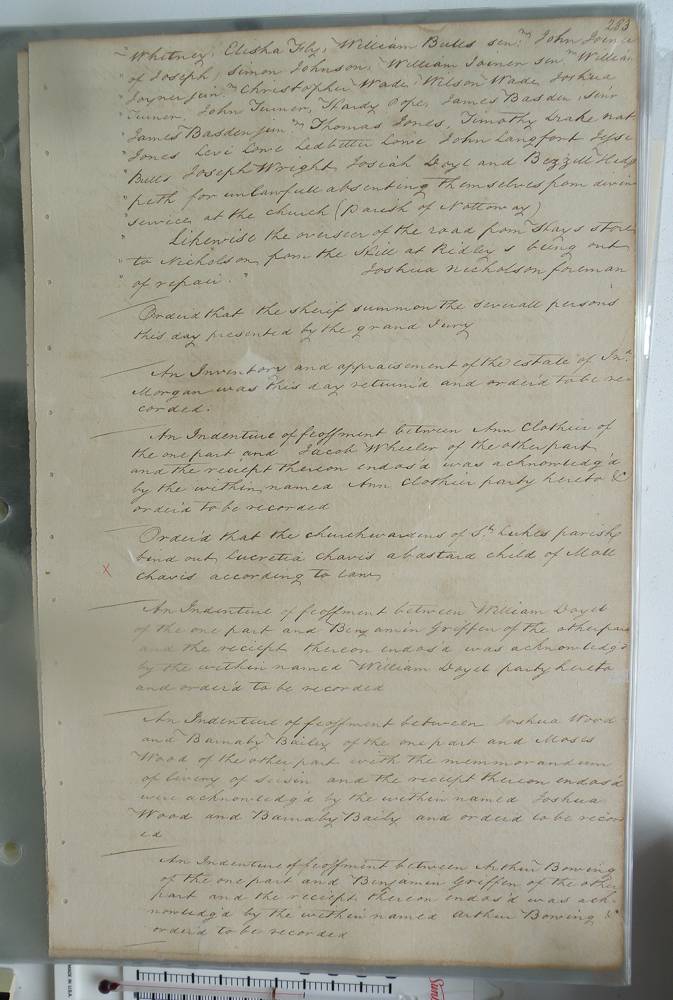 283
" Whitney, Elisha Fly, William Bulls senr. John Joiner
" of Joseph, Simon Johnson, William Joiner senr William
" Joyner junr Christopher Wade, Wilson Wade, Joshua
" Turner, John Turner, Hardy Pope, James Basden, senr
" James Basden junr Thomas Jones, Timothy Drake nat
" Jones Levi Lowe Ledbetter Lowe John Langfort Jesse
" Bulls Joseph Wright, Josiah Doyel and Bezzell Hedg
" peth for unlawfull absenting themselves from divin
" service at the church (Parish of Nottoway)
" Likewise the overseer of the road from Hays store
" to Nicholson from the Mill at Ridley s being out
" of repair. " Joshua Nicholson foreman
Orderd that the sherif summon the severall persons
this day presented by the grand Jury
An Inventory and appraisement of the estate of Jno.
Morgan was this day return'd and order'd to be re
corded.
An Indenture of feoffment between Ann Clothier of
the one part and Jacob Wheeler of the other part
and the reciept thereon endos'd was acknowledg'd
by the within named Ann Clothier party hereto &
order'd to be recorded
Order'd that the churchwardens of St. Lukes parish
bind out Lucretia Chavis a bastard child of Moll
x
Chavis according to law
An Indenture of feoffment between William Doyel
of the one part and Benjamin Griffen of the other part
and the reciept thereon endos'd was acknowledg'd
by the within named William Doyel party hereto
and order'd to be recorded
An Indenture of feoffment between Joshua Wood
and Barnaby Baily of the one part and Moses
Wood of the other part with the memmorandum
of livery of seisin and the reciept thereon endos'd
were acknowledg'd by the within named Joshua
Wood and Barnaby Baily and orderd to be record
ed
An Indenture of feoffment between Arthur Bowing
of the one part and Benjamin Griffen of the other
part and the reciept thereon endos'd was ack-
nowledg'd by the within named Arthur Bowing &
order'd to be recorded
MADE IN U.S.A.